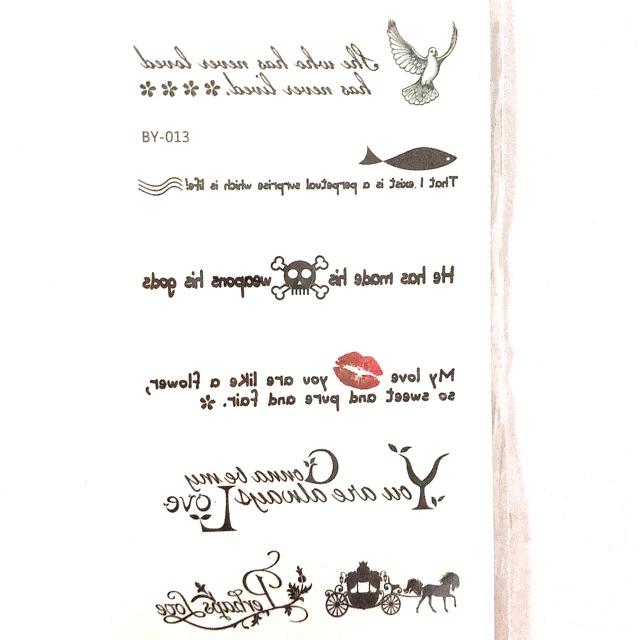 She who has never loved
has never lived.
BY-013
That I exist is a perpetual surprise which is life!
He has made his weapons his gods
My love you are like a flower,
so sweet and pure and fair.
You are always Gonna be my
Love
Perhaps Love